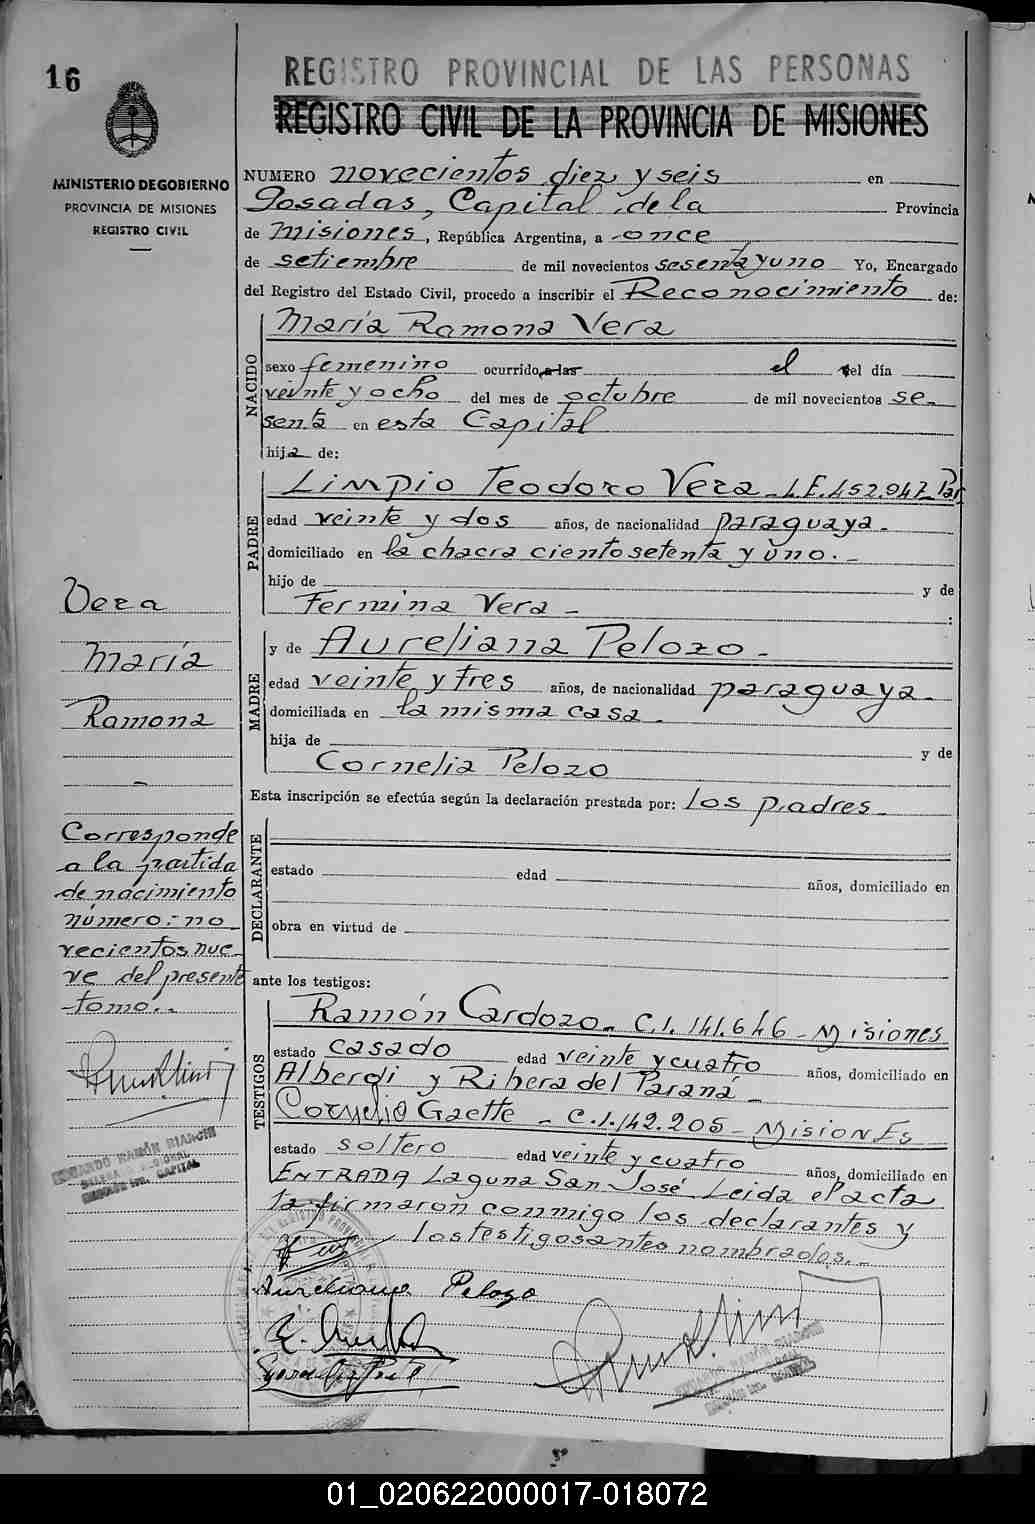 16
MINISTERIO DE GOBIERNO
PROVINCIA DE MISIONES
REGISTRO CIVIL
Vera
María
Ramona
-
Corresponde
a la partida
de nacimiento
número:- no
vecientos nue-
ve del presente
tomo.-
REGISTRO PROVINCIAL DE LAS PERSONAS
REGISTRO CIVIL DE LA PROVINCIA DE MISIONES
NUMERO novecientos diez y seis en
Posadas, Capital de la Provincia
de Misiones, República Argentina, a once
de setiembre de mil novecientos sesenta y uno Yo, Encargado
del Registro del Estado Civil, procedo a inscribir el Reconocimiento de:
NACIDO
María Ramona Vera
sexo femenino ocurrido a las el del día
veinte y ocho del mes de octubre de mil novecientos se-
senta en esta Capital
hija de:
PADRE
Limpio Teodoro Vera - L.E. 452.947 Par
edad veinte y dos años, de nacionalidad paraguaya.-
domiciliado en la chacra ciento setenta y uno.-
hijo de y de
Fermina Vera - :
MADRE
y de Aureliana Pelozo -
edad veinte y tres años, de nacionalidad paraguaya.-
domiciliada en la misma casa -
hija de y de
Cornelia Pelozo
Esta inscripción se efectúa según la declaración prestada por: los padres -
DECLARANTE
estado edad años, domiciliado en
obra en virtud de
ante los testigos:
TESTIGOS
Ramón Cardozo - C.I. 141.646 - Misiones
estado casado edad veinte y cuatro años, domiciliado en
Alberdi y Ribera del Paraná -
Cornelio Gaette - C.I. 142.205 - Misiones
estado soltero edad veinte y cuatro años, domiciliado en
Entrada Laguna San José Leida el acta
la firmaron conmigo los declarantes y
los testigos antes nombrados.-
Aureliana Pelozo
01_020622000017-018072